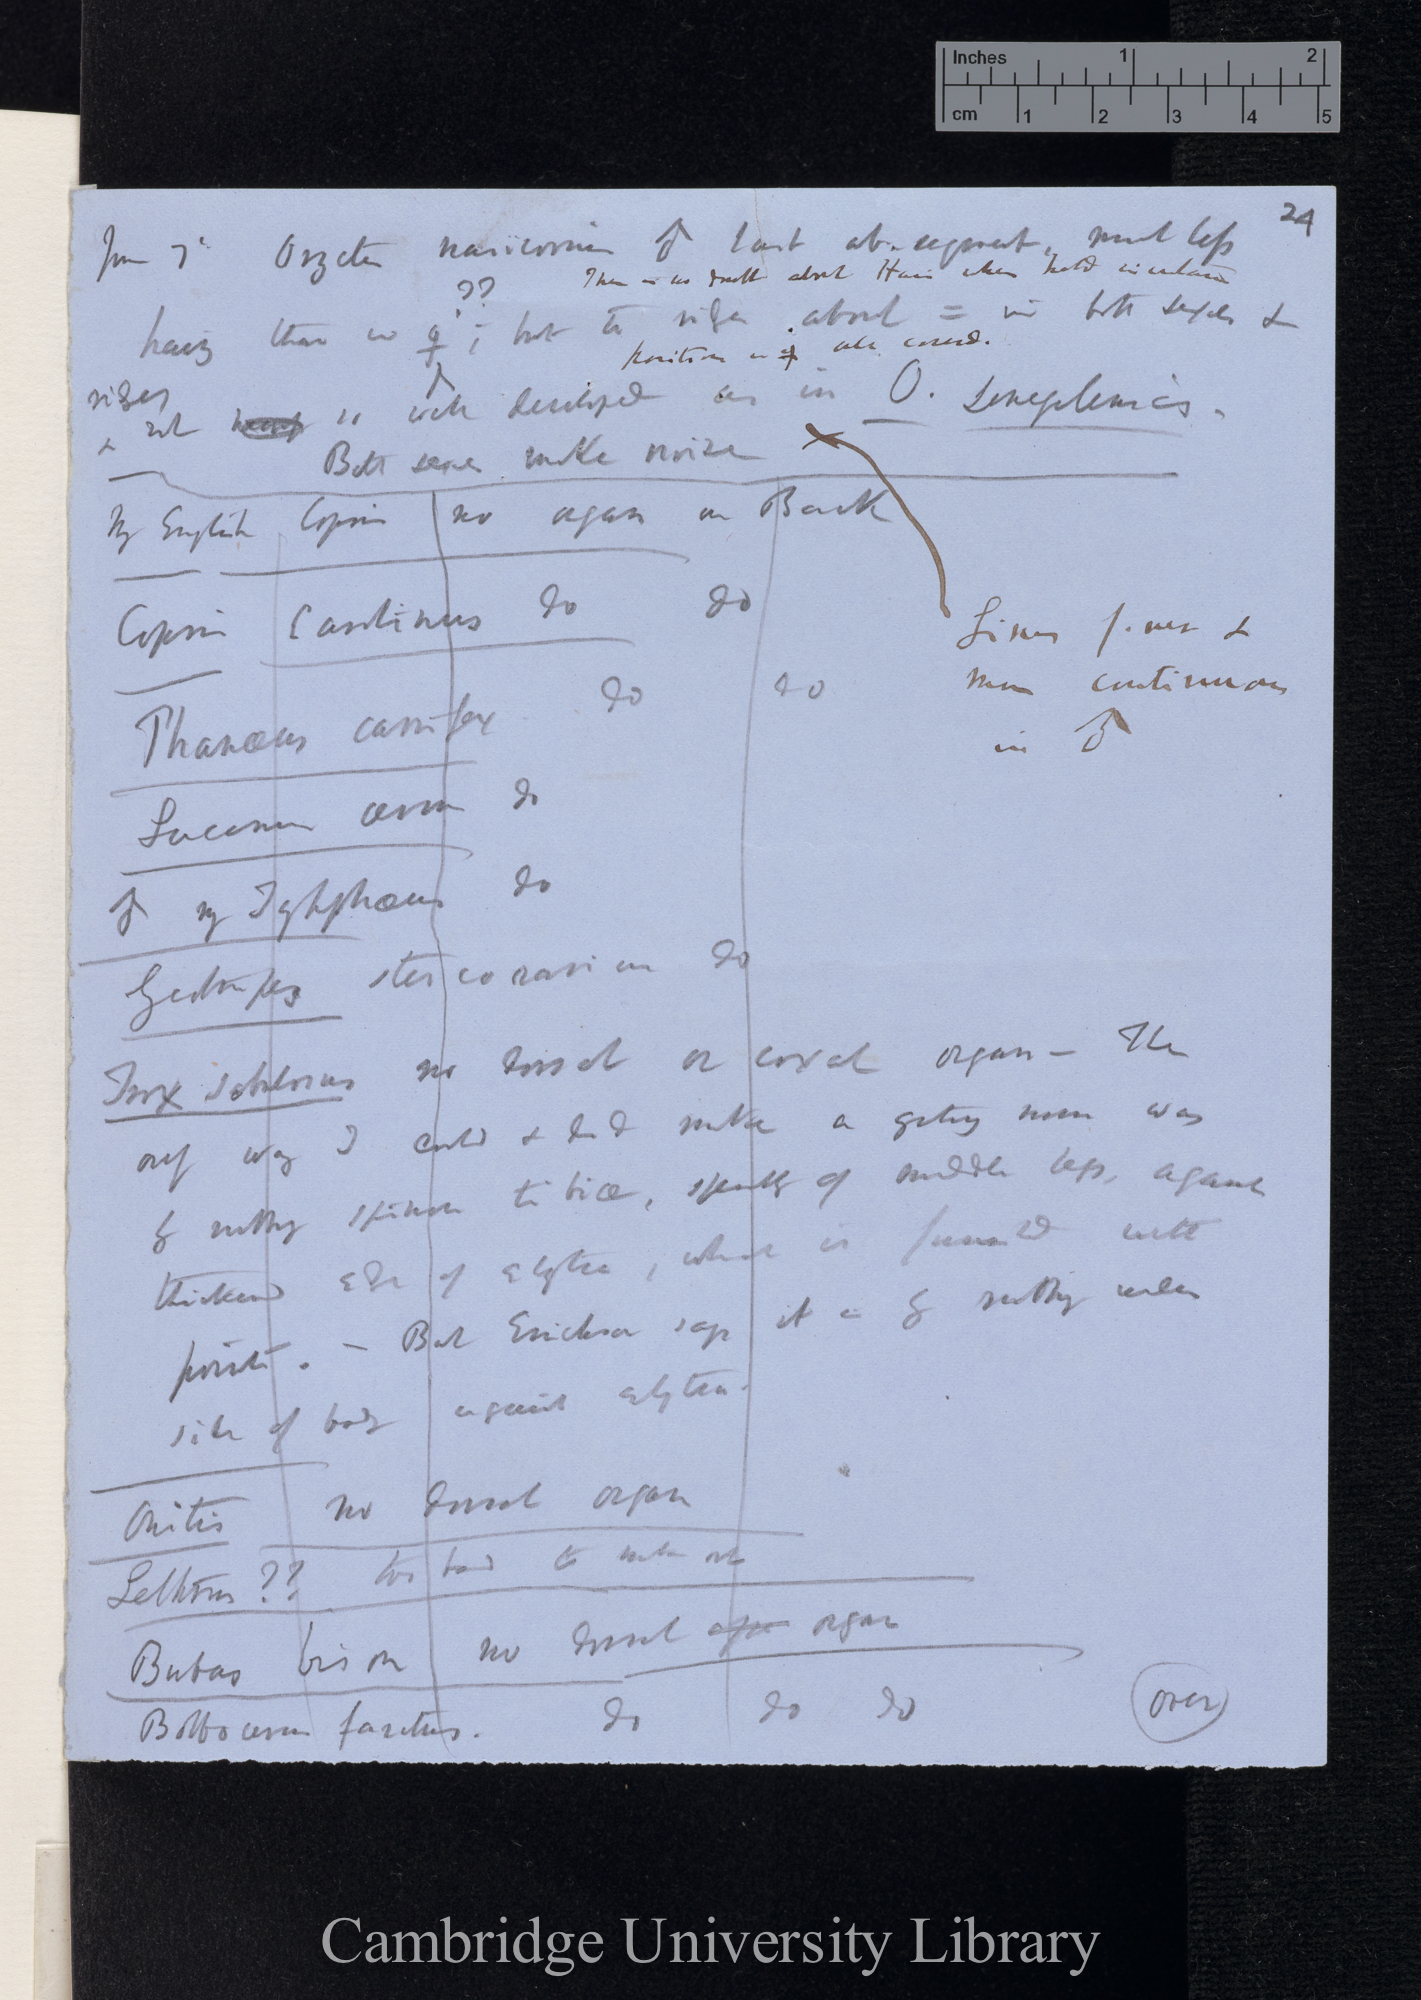 Inches 1 2
cm 1 2 3 4 5
24
Jan 7th Oryctes nasicornis ♂ last ab. segment, much less
There is no doubt about Hair when held in certain
hairy than in ♀ ??; but the ridges about = in both sexes &
position in ♀ are covered.
ridges
& not so well developed as in O. senegalensis.
Both sexes make noise
My English Copris no organ on Back
Copris Lartinus do do
Phanaeus carnifex do do
Lucanus cervus do
♂ my Typhphaeus do
Geotrupes stercorarius do
lines finer &
more continuous
in ♂
Trox sabulosus no dorsal or coxal organ — The
only way I could & did make a grating noise was
by rubbing spinose tibiae, specially of middle legs, against
thickened edge of elytra, which is furnished with
points. — But Erichson says it is by rubbing under
side of body against elytra.
Onitis no dorsal organ
Lethrus ?? too hard to make out
Bubas bison no dorsal organ
Bolbocerus do do do
over
Cambridge University Library